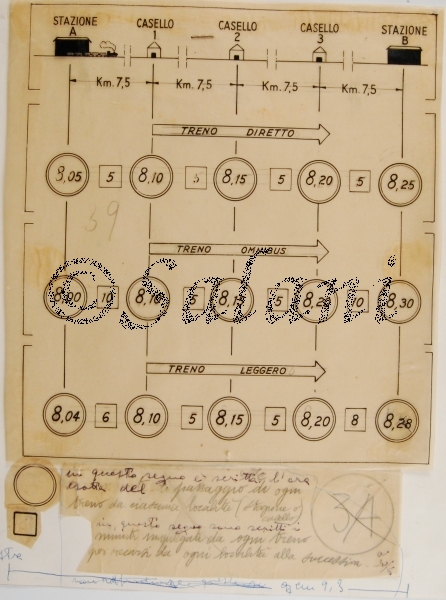 STAZIONE A CASELLO 1 CASELLO 2 CASELLO 3 STAZIONE B
Km. 7,5 Km. 7,5 Km. 7,5 Km. 7,5
TRENO DIRETTO
8,05 5 8,10 5 8,15 5 8,20 5 8,25
39
TRENO OMNIBUS
8,00 10 8,10 5 8,15 5 8,20 10 8,30
©Salani
TRENO LEGGERO
8,04 6 8,10 5 8,15 5 8,20 8 8,28
in questo segno è scritta l'ora
esatta del passaggio di ogni
treno da ciascuna località (Stazione o
3A
in questo segno sono scritti i
minuti impiegati da ogni treno
per recarsi da ogni località alla successiva